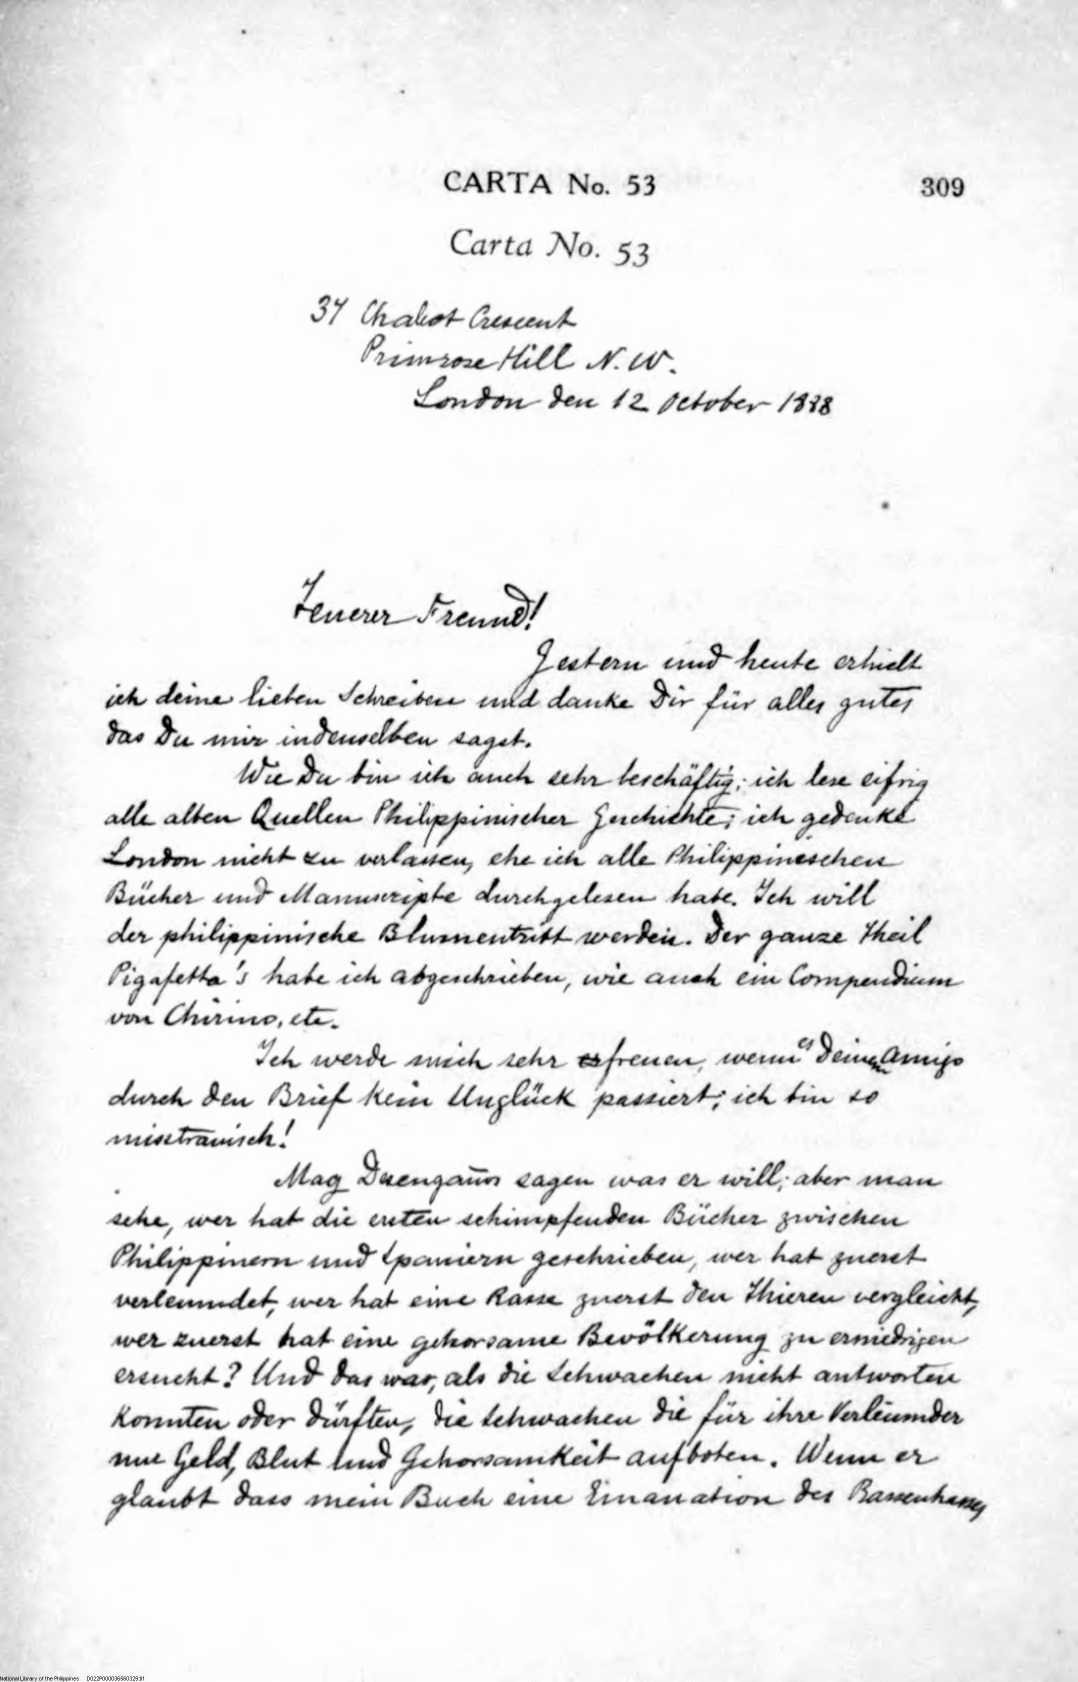 CARTA No. 53
309
Carta No. 53
37 Chalcot Crescent
Primrose Hill N. W.
London den 12 October 1888
Teuerer Freund!
Gestern und heute erhielt
ich deine lieben Schreiben und danke Dir für alles gutes
das Du mir indenselben sagst.
Wie Du bin ich auch sehr beschäftig; ich lese eifrig
alle alten Quellen Philippinischer Geschichte; ich gedenke
London nicht zu verlassen, ehe ich alle Philippineschen
Bücher und Manuscripte durchgelesen habe. Ich will
der philippinische Blumentritt werden. Der ganze Theil
Pigafetta's habe ich abgeschrieben, wie auch ein Compendium
von Chirino, etc.
Ich werde mich sehr freuen, wenn es Deinem Amigo
durch den Brief kein Unglück passiert; ich bin so
misstrauisch!
Mag Desengaños sagen was er will; aber man
sehe, wer hat die ersten schimpfenden Bücher zwischen
Philippinern und Spaniern geschrieben, wer hat zuerst
verleumdet, wer hat eine Rasse zuerst den Thieren vergleicht,
wer zuerst hat eine gehorsame Bevölkerung zu erniedrigen
ersucht? Und das war, als die Schwachen nicht antworten
konnten oder dürften, die Schwachen die für ihre Verleumder
nur Geld, Blut und Gehorsamkeit aufboten. Wenn er
glaubt dass mein Buch eine Emanation des Rassenhasses
National Library of the Philippines